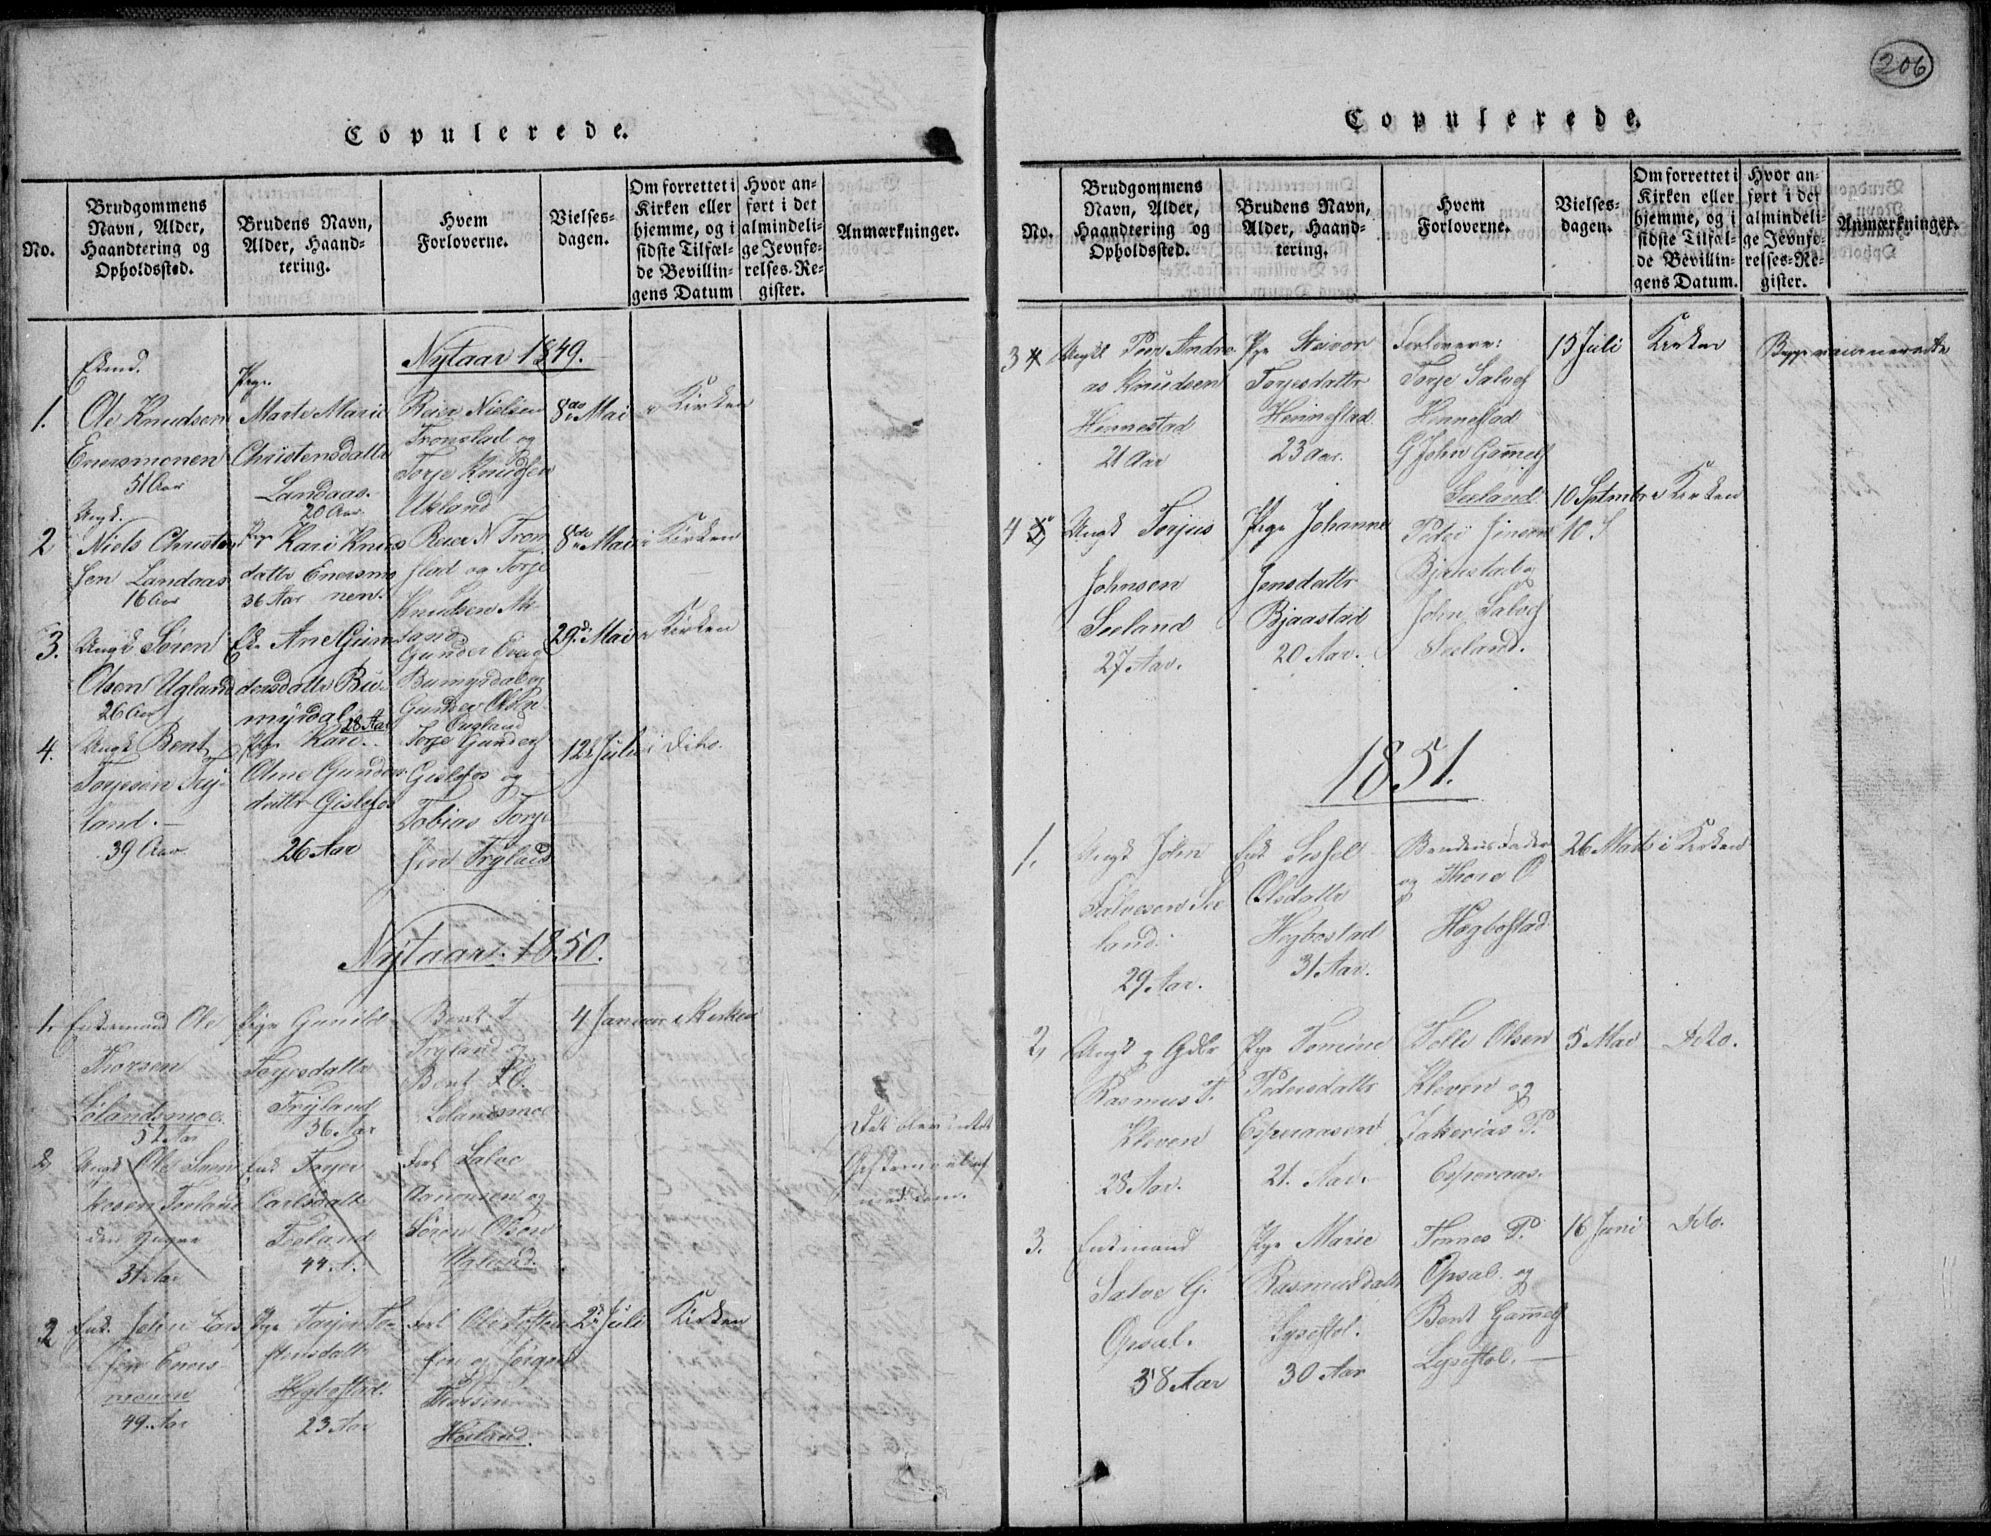 206
Copulerede.
No.
Brudgommens
Navn, Alder,
Haandtering og
Opholdssted.
Brudens Navn,
Alder, Haand-
tering.
Hvem
Forloverne.
Vielses-
dagen.
Om forrettet i
Kirken eller
hjemme, og i
sidste Tilfæl-
de Bevillin-
gens Datum
Hvor an-
ført i det
almindeli-
ge Jevnfø-
relses-Re-
gister.
Anmærkninger.
Nytaar 1849.
1.
Ole Knudsen
Enersmonen
51 Aar
Pige
Marte Marie
Christensdattr
Landaas
20 Aar
Reier Nielsen
Tronstad og
Torje Knudsen
Ukland
8de Mai
i Kirken
2
Ungk.
Niels Christen
sen Landaas
16 Aar
Pige Kari Knuds
dattr Enersmo
36 Aar nen.
Reier N Tron
stad og Torje
Knudsen
8de Mai
i Kirken
3.
Ungk Søren
Olsen Ugland
26 Aar
Ane Gun
dersdattr Bu
myrdal 28 Aar
Gunder
Bumyrdal og
Gunder Olsen
Ougland
29de Mai
i Kirken
4.
Ungk Bent
Torjesen Try-
land.
39 Aar
Pige Kari
Oline Gunders
dattr Gislefos
26 Aar
Torje Gunders
Gislefos og
Tobias Torje
sen Tryland
12 Juli
i Dito.
Nytaar 1850.
1.
Enkemand Ole
Thorsen
Lølandsmoe.
52 Aar
Pige Gunild
Torjesdattr
Tryland
36 Aar
Bent T
Tryland og
Bent
Lølandsmoe
4 Januar
i Kirken
2
Ungk Ole
den yngre
31 Aar
Enk Torjer
Carlsdattr
44 A.
Forl Salve
Aanonsen og
Søren Olsen
Ugland.
med dem.
2
Enk. John Lars
sen Eners-
monen
49 Aar
Pige Torjer To
stensdattr
Hegbostad.
23 Aar
Forl Ole Tosten
sen og Jørgen
Thorsen
Høiland.
2 Juli
Kirken
Copulerede.
No.
Brudgommens
Navn, Alder,
Haandtering og
Opholdssted.
Brudens Navn,
Alder, Haand-
tering.
Hvem
Forloverne.
Vielses-
dagen.
Om forrettet i
Kirken eller
hjemme, og i
sidste Tilfæl-
de Bevillin-
gens Datum.
Hvor an-
ført i det
almindeli-
ge Jevnfø-
relses-Re-
gister.
Anmærkninger.
3
Ungk Peer Andre
as Knudsen
Hennestad
21 Aar
Pige Siavor
Torjesdattr
Hennestad
23 Aar.
Forlovere:
Torje Salves
Hennestad
G John Gamels
Seeland
15 Juli
Kirken
4
Ungk Torjus
Johnsen
Seeland
27 Aar.
Pige Johanne
Jensdattr
Bjaastad
20 Aar.
Peder Jensen
Bjaastad og
John Salves
Seeland.
10 Septembr
i Kirken
10 S
1851.
1.
Ungk John
Salvesen See
land.
29 Aar.
Enk Sissel
Olsdattr
Hegbostad
31 Aar.
Brudens Fader
og Thore O
Hægbostad
26 Marts
i Kirken
2,
Ungk g Gdbr
Rasmus T.
Kleven
28 Aar.
Pige Tomine
Pedersdattr
Esperaasen
21. Aar.
Tolli Olsen
Kleven og
Zakerias P.
Esperaas.
5 Mai
Dito.
3.
Enkmand
Salve G.
Opsal.
38 Aar
Pige Marie
Rasmusdattr
Lysestøl.
30 Aar
Tønnes P.
Opsal og
Bent Gamels
Lysestøl.
16 Juni
Dito.